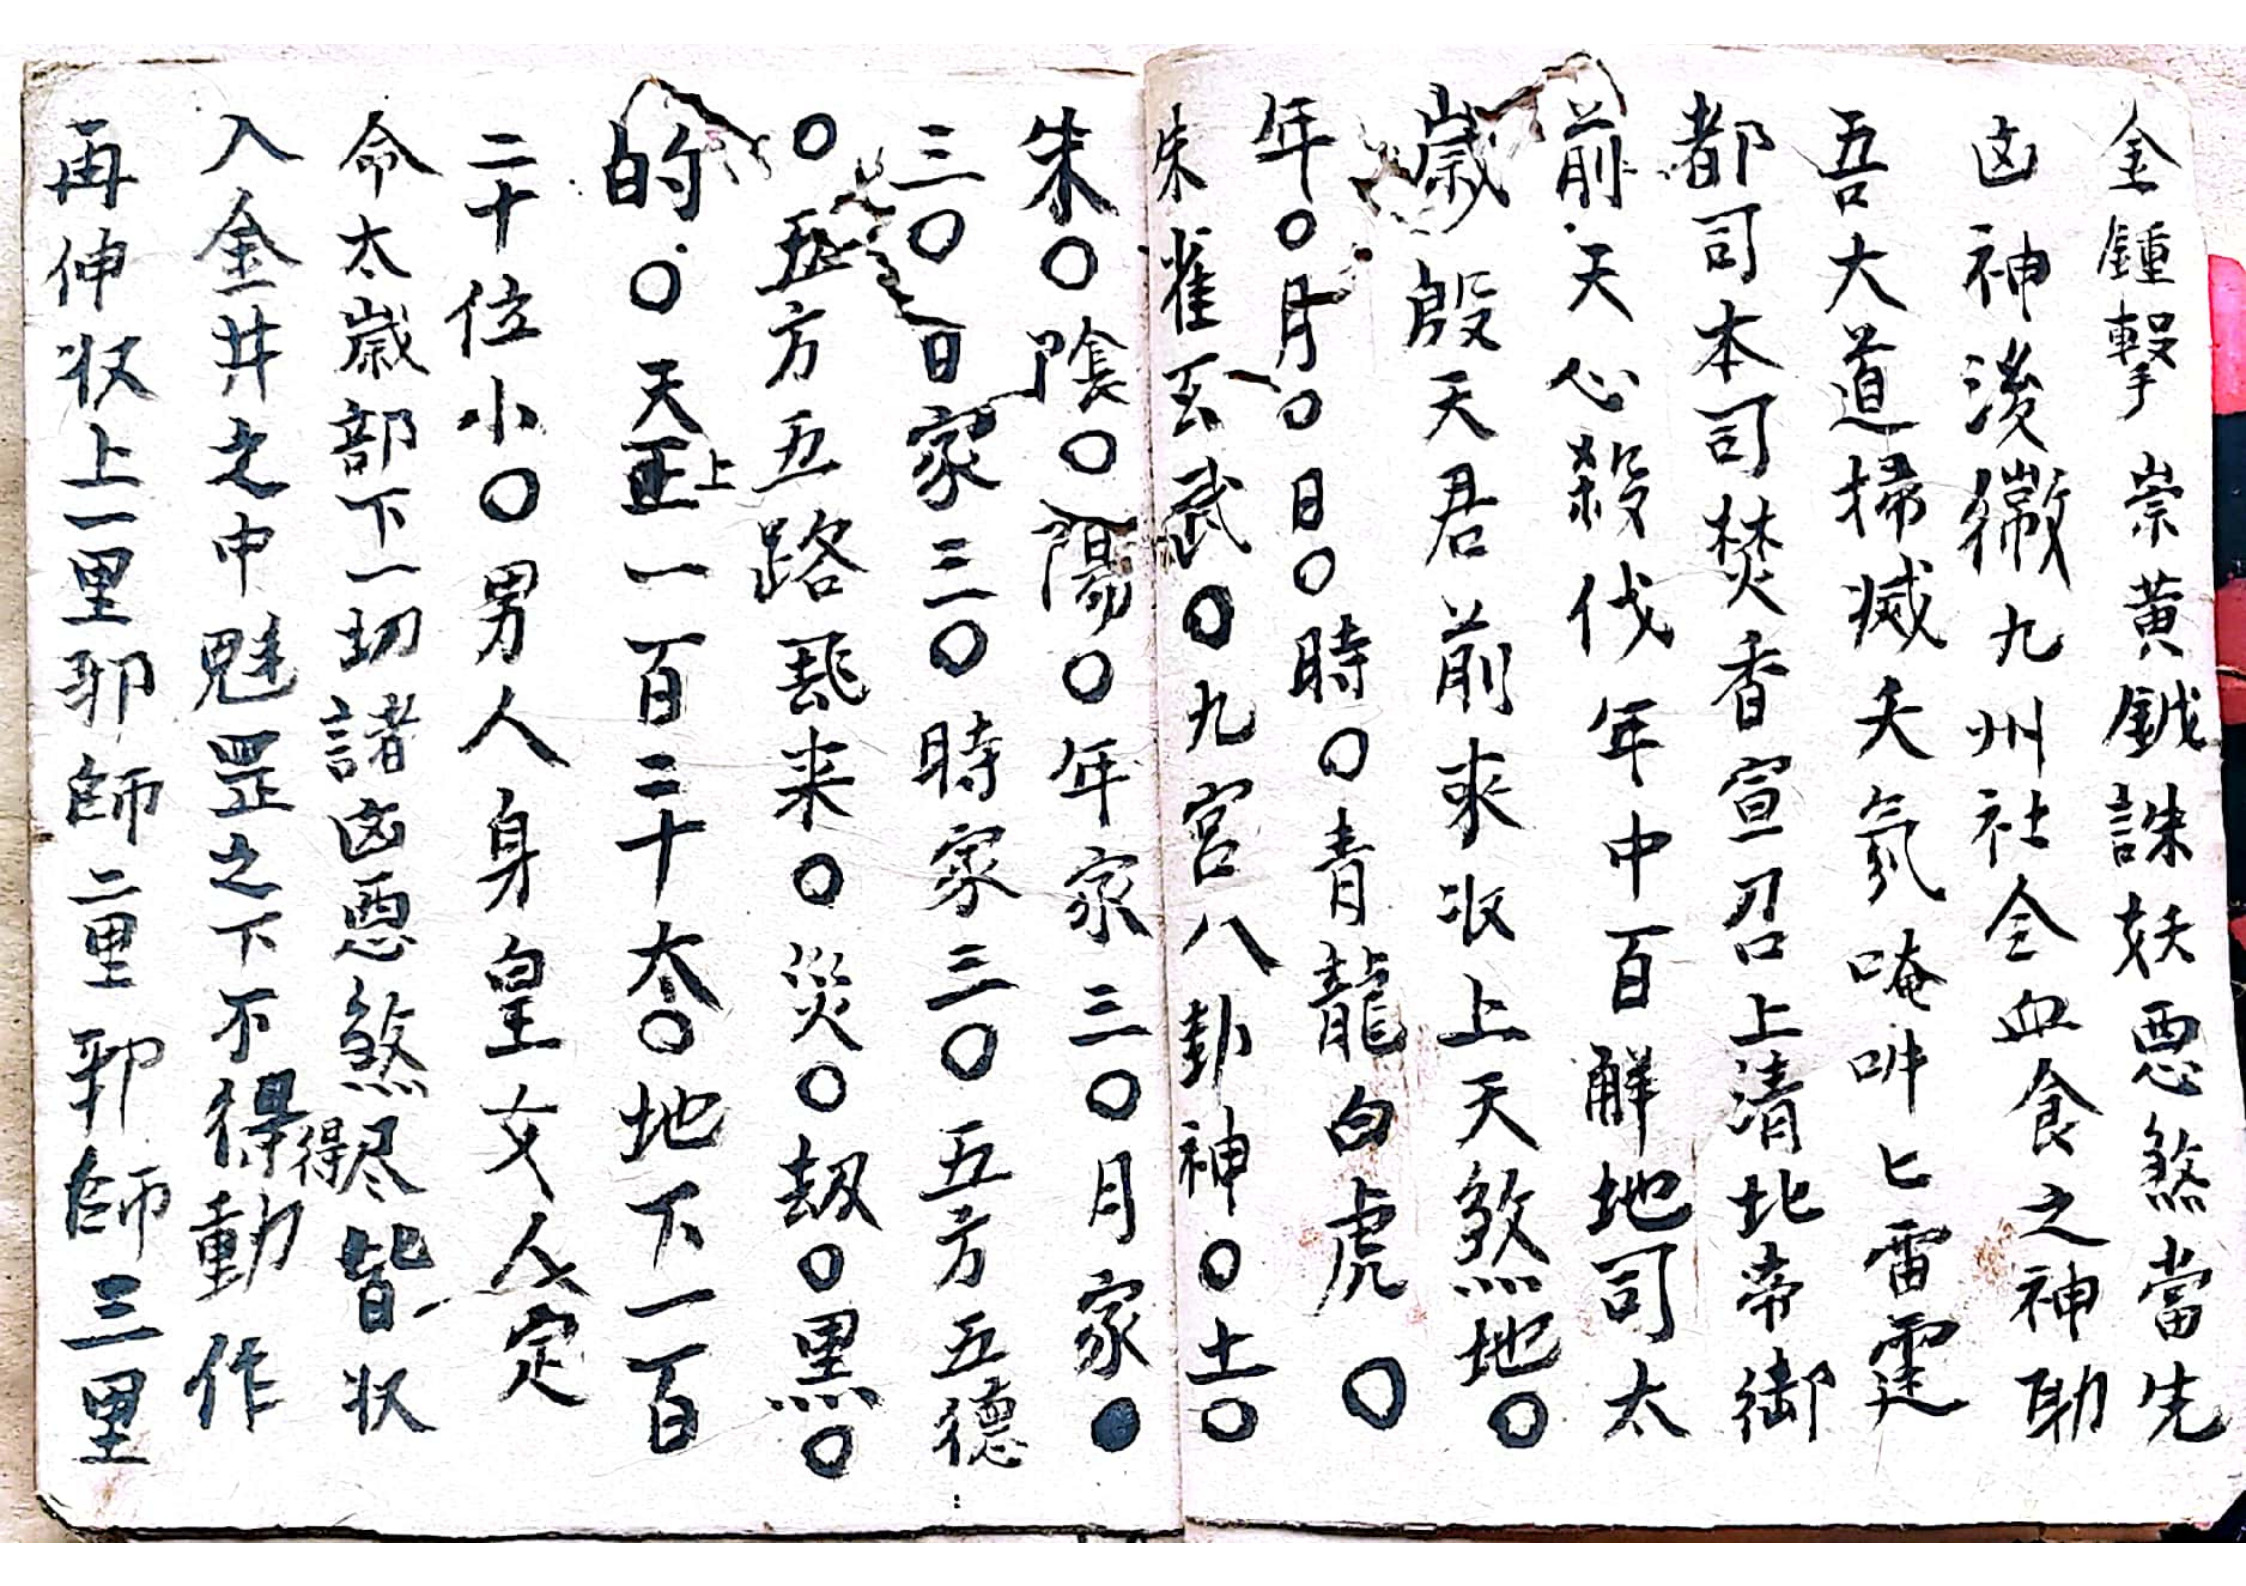 金鍾擊崇黃鉞誅妖惡煞當先
凶神後徽九州社令血食之神助
吾大道掃滅夭氛唵吽匕雷霆
都司本司焚香宣召上清北帝御
前天心殺伐年中百解地司太
歲殷天君前來收上天煞地〇
年〇月〇日〇時〇青龍白虎〇
朱雀玄武〇九宮八卦神〇土〇
朱〇陰〇陽〇年家三〇月家
三〇日家三〇時家三〇五方五德
〇五方五路瘟来〇災〇劫〇黑〇
的〇天上一百二十太〇地下一百
二十位小〇男人身皇女人定
命太歲部下一切諸凶惡煞尽皆收
入金井之中魁罡之下不得動作
再伸收上一里邪師二里邪師三里